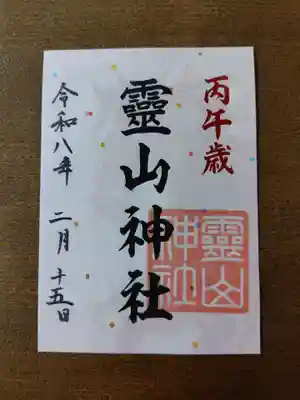 丙午歳
靈山神社
靈山
神社
令和八年
二月
十五日